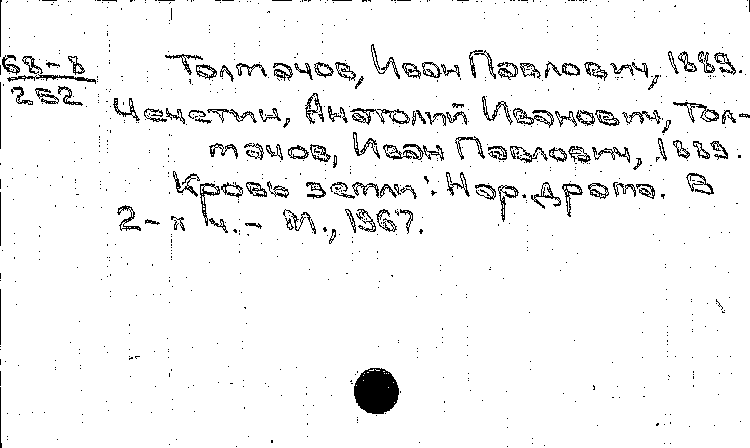 68-8
262
Толмачов, Иван Павлович, 1889.
Чечетин, Анатолий Иванович, Тол-
мачов, Иван Павлович, 1889.
Кровь земли: Нар. драма. В
2-х ч. - М., 1967.